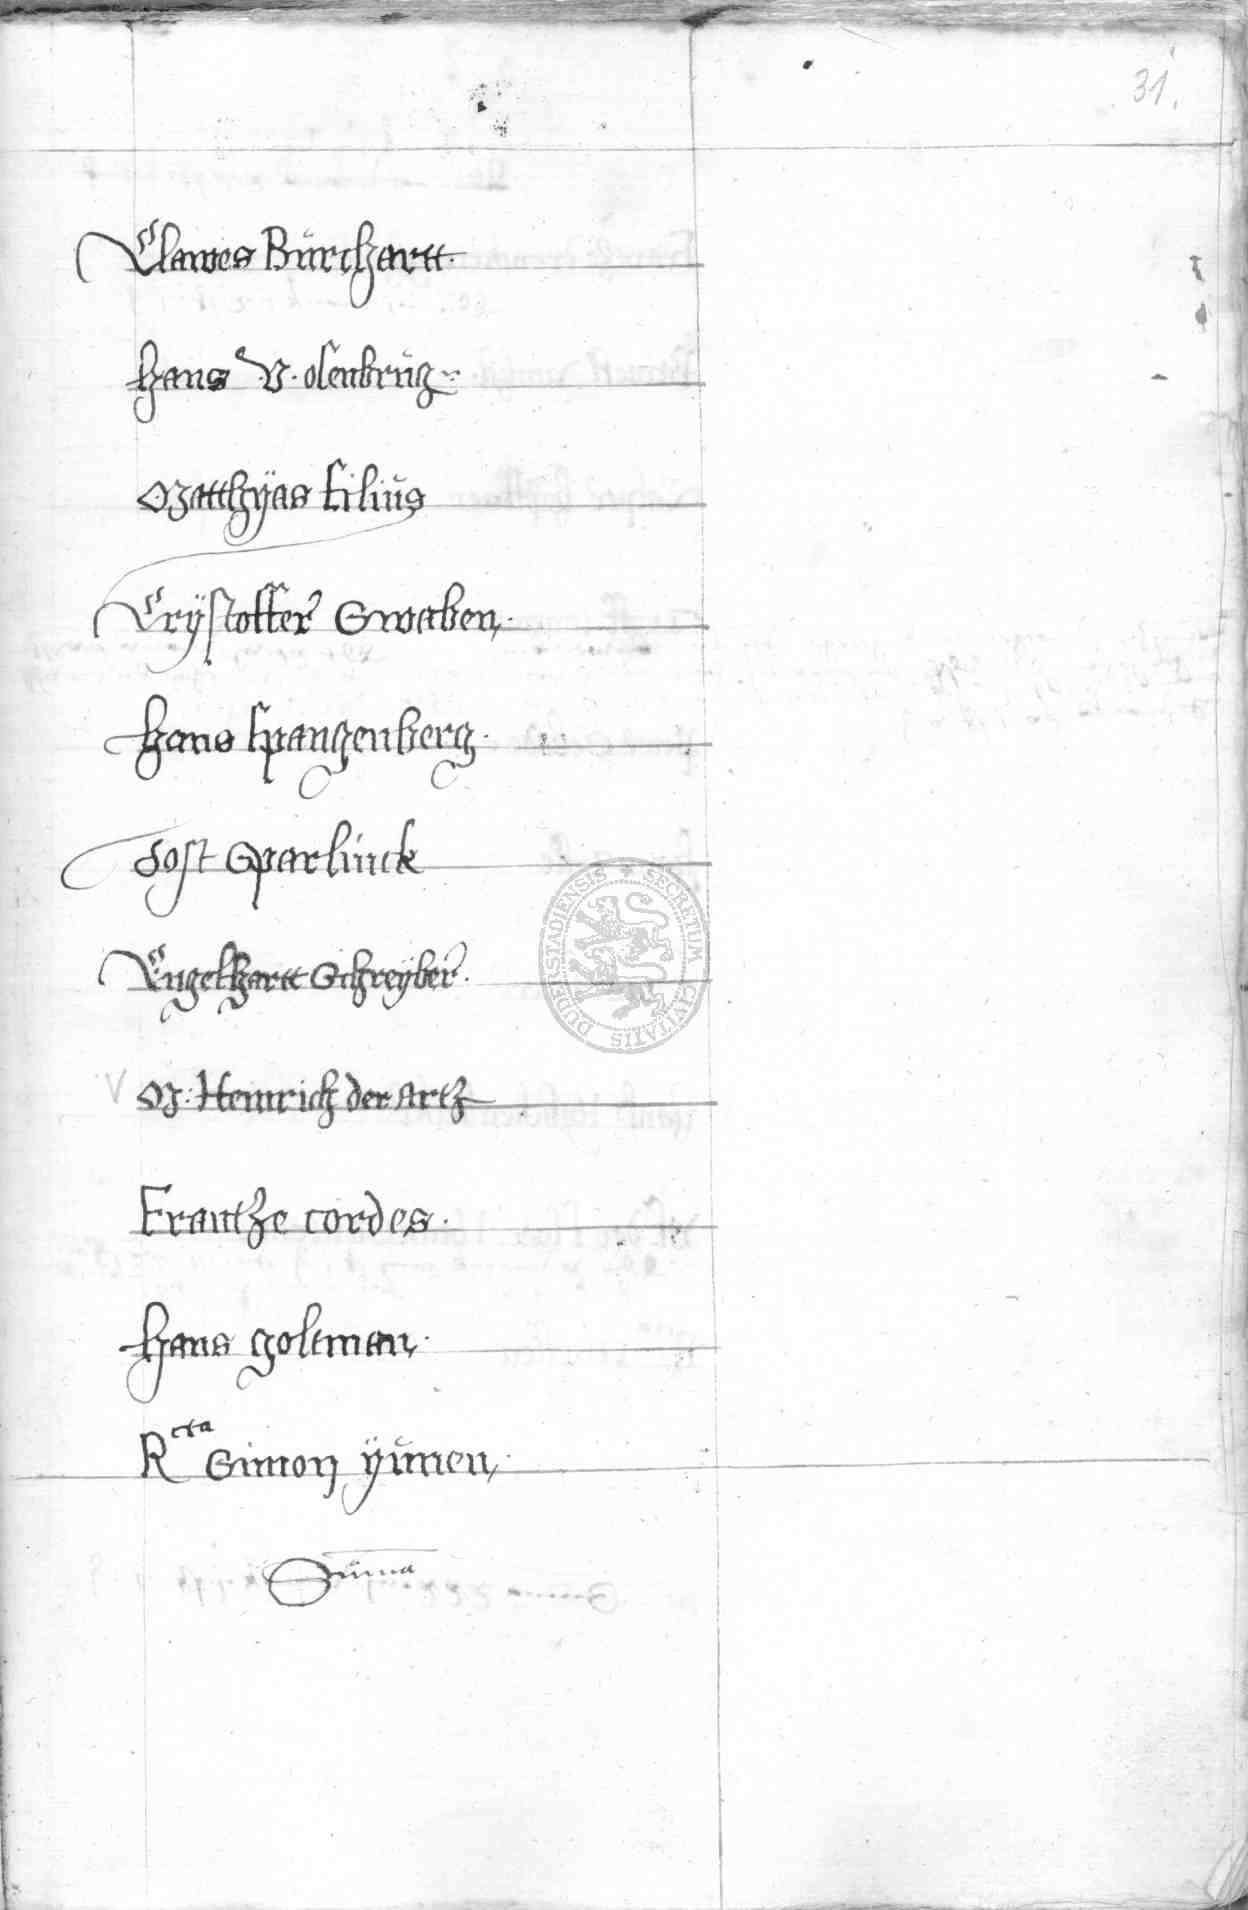 31.
Clawes Bürchartt.
Hans V. olenbrüg
Matthÿas filiüs
Crÿstoffer Swaben.
Hans Spangenberg.
Jost Sparlinck
Engelhartt Schreÿber.
M. Heinrich der Artz
Frantze Cordes.
Hans Goltman.
Rcta Simon ÿümen.
Süma
SECRETUM CIVITATIS DUDERSTADIENSIS